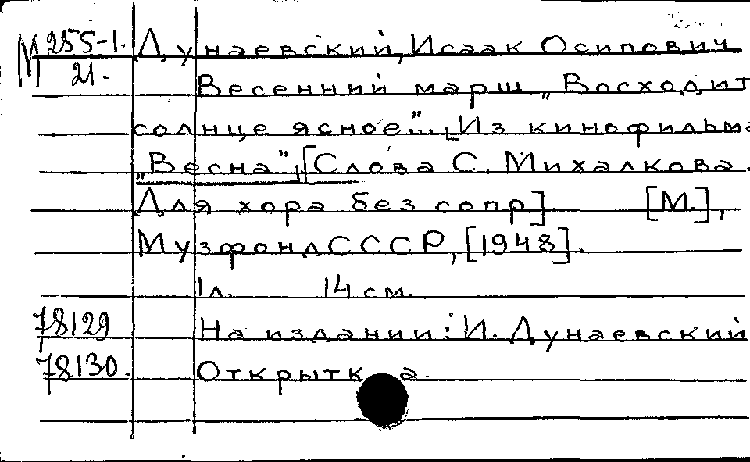 М 255-1. Дунаевский, Исаак Осипович
21.
Весенний марш „Восходит
солнце ясное"... [Из кинофильма
„Весна". [Слова С. Михалкова.
Для хора без сопр] [М.],
Музфонд СССР, [1948].
1л. 14 см.
78129 На издании: И. Дунаевский
78130. Открытка